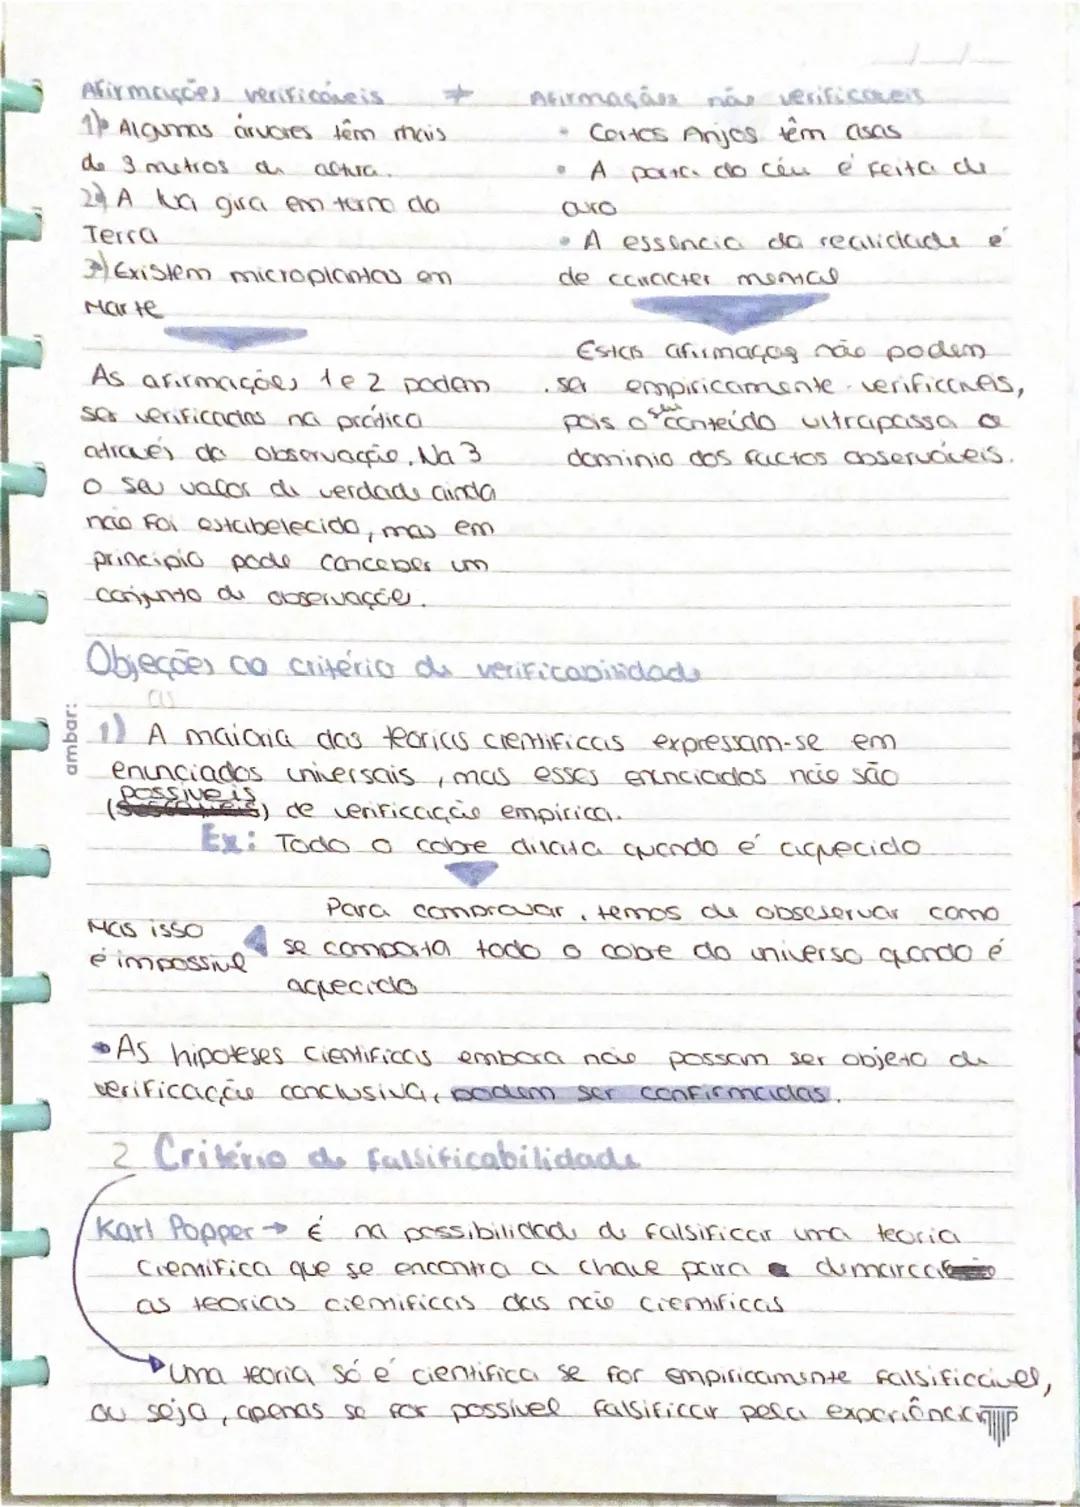 Afirmações verificáveis ≠ Afirmações não verificáveis
1) Algumas árvores têm mais
de 3 metros de altura.
2) A lua gira em torno da
Terra
3) Existem microplantas em
Marte
• Certos Anjos têm asas
• A porta do céu é feita de
ouro
• A essência da realidade é
de carácter mental
As afirmações 1 e 2 podem
ser verificadas na prática
através da observação. Na 3
o seu valor de verdade ainda
não foi estabelecido, mas em
principio pode conceber um
conjunto de observações.
Estas afirmações não podem
ser empiricamente verificáveis,
pois o seu conteúdo ultrapassa o
dominio dos factos observáveis.
Objeções ao critério de verificabilidade
ambar:
1) A maioria das teorias cientificas expressam-se em
enunciados universais, mas esses enunciados não são
(possiveis) de verificação empirica.
Ex: Todo o cobre dilata quando é aquecido
Para comprovar, temos de obseservar como
se comporta todo o cobre do universo quando é
aquecido
Mas isso
é impossivel
• As hipoteses cientificas embora não possam ser objeto de
verificação conclusiva, podem ser confirmadas.
2 Critério de falsificabilidade
Karl Popper → É na possibilidade de falsificar uma teoria
cientifica que se encontra a chave para demarcar
as teorias cientificas das não cientificas
Uma teoria só é cientifica se for empiricamente falsificável,
ou seja, apenas se for possivel falsificar pela experiência